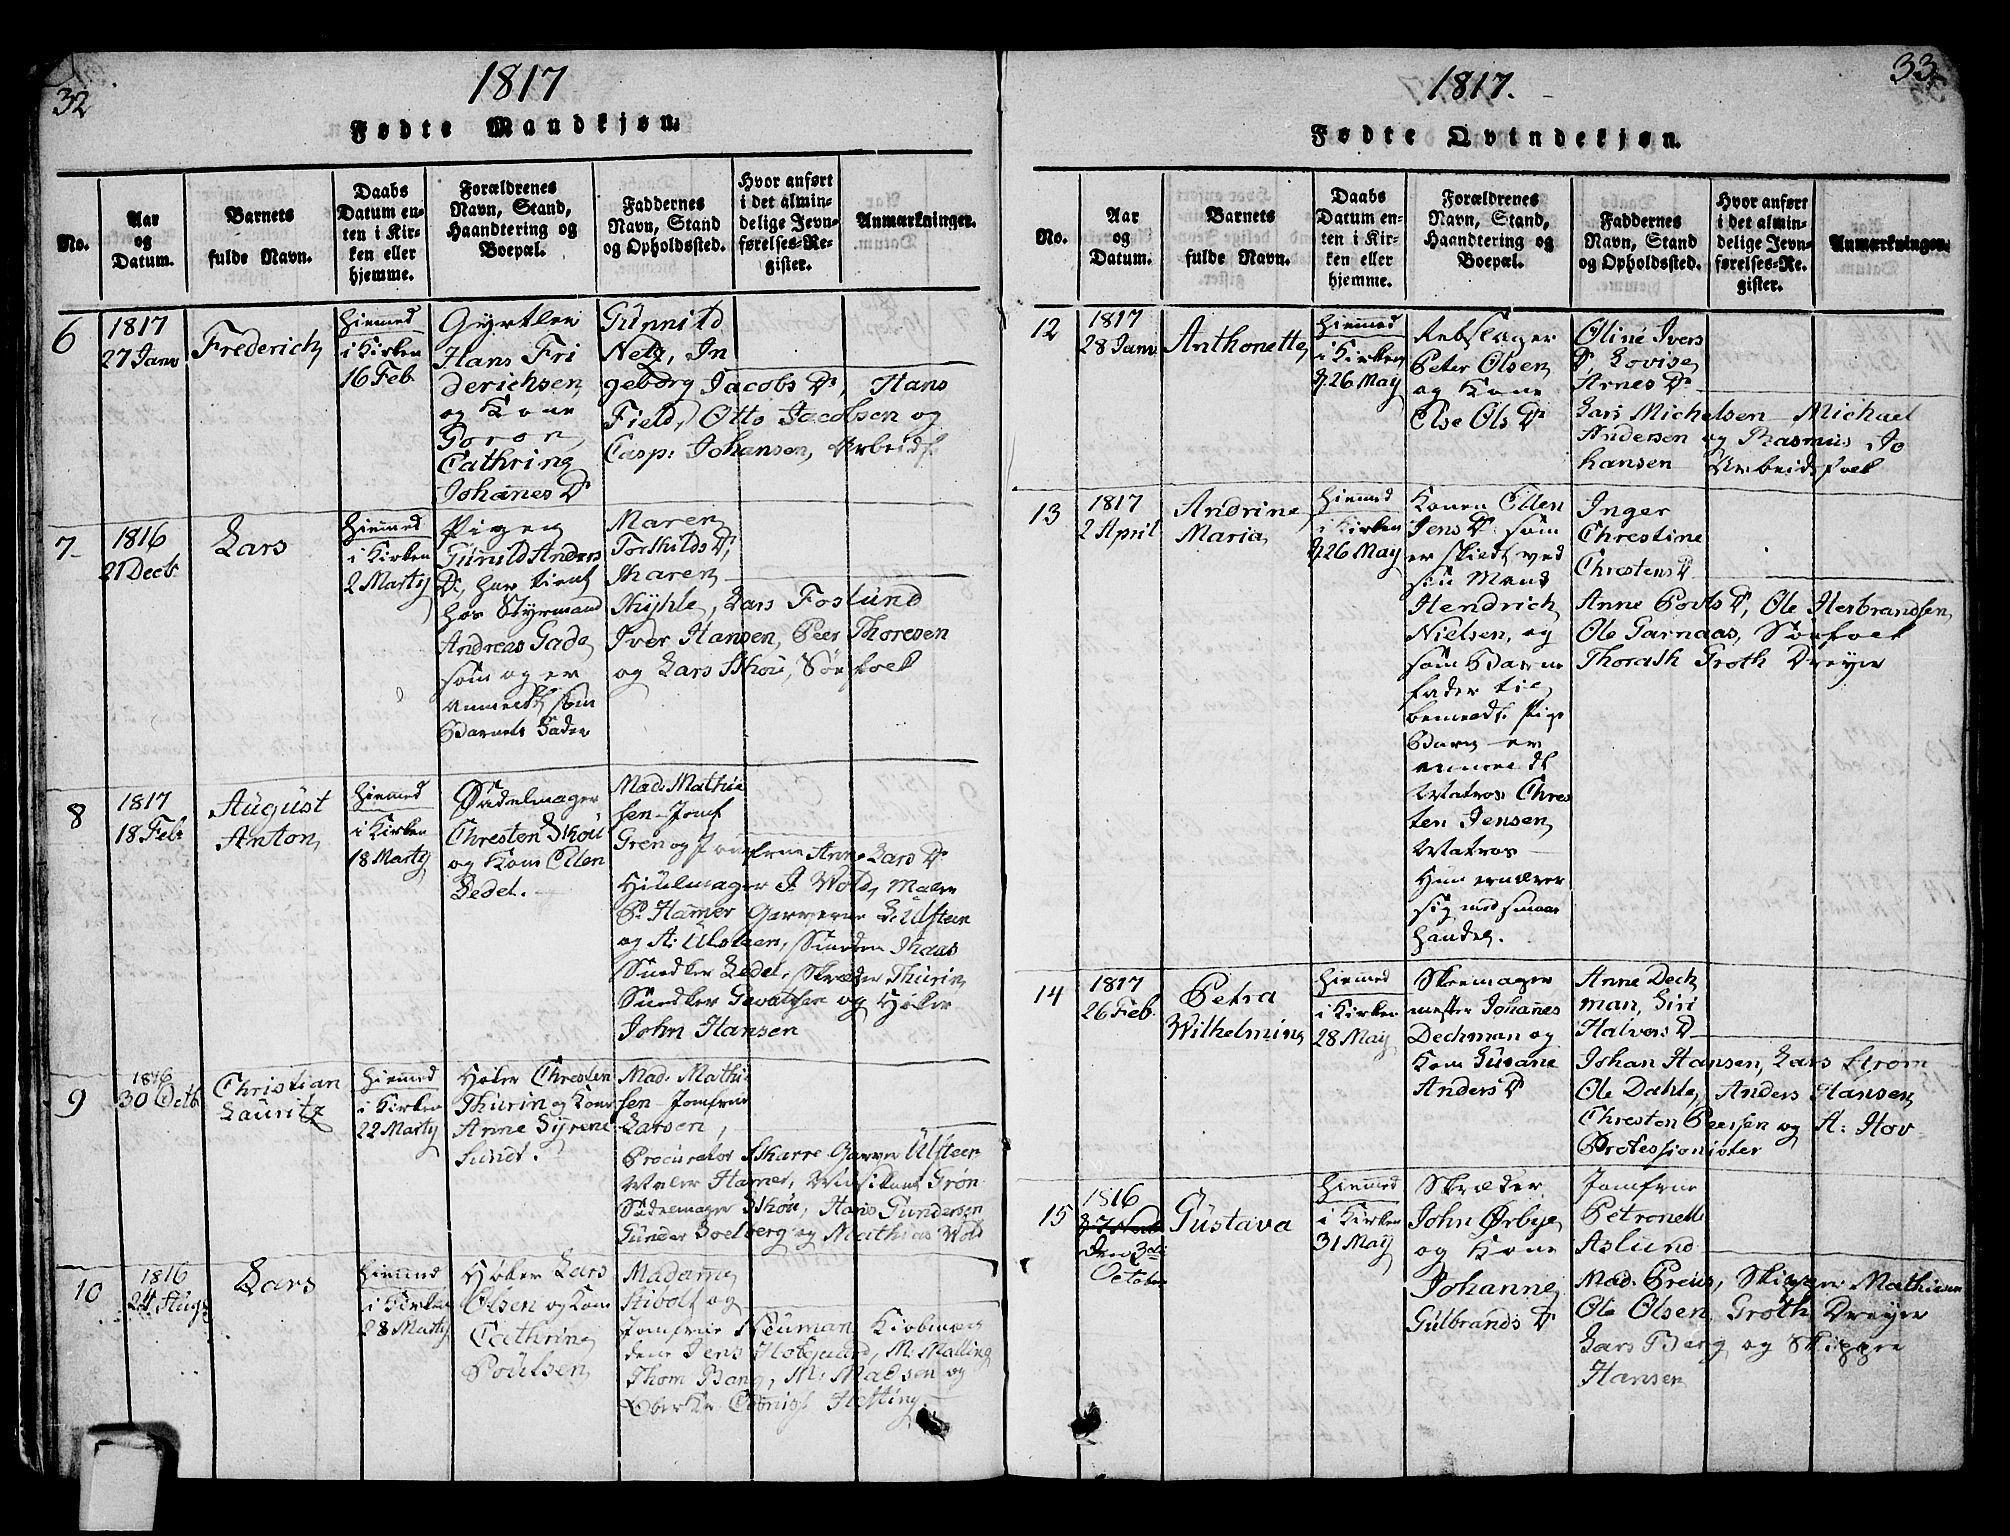 32
1817
Fødte Mandkjøn.
No.
Aar
og
Datum.
Barnets
fulde Navn.
Daabs
Datum en-
ten i Kir-
ken eller
hjemme.
Forældrenes
Navn, Stand,
Haandtering og
Boepæl.
Faddernes
Navn, Stand
og Opholdssted.
Hvor anført
i det almin-
delige Jevn-
førelses-Re-
gister.
Anmærkninger.
6
1817
27 Janv
Frederich
Hiemmed
i Kirken
16 Feb.
Gyrtler
Hans Fri
derichsen
og Kone
Goron
Cathring
Johanes D
Gunnild
Netz, In
geborg Jacobs D, Hans
Field, Otto Jacobsen og
Casp: Johansen, Arbeidsf
7
1816
21 Decb.
Lars
Hiemmed
i Kirken
2 Marty
Pigen
Gunild Anders
D, har tient
hos Styrmand
Andreas Gade
som og er
anmeldt som
Barnets Fader
Maren
Torkilds D,
Maren
Myhle, Lars Foslund
Iver Hansen, Peer Thoresen
og Lars Skou, Søefolk
8
1817
18 Feb
August
Anton
Hiemmed
i Kirken
18 Marty
Sadelmager
Chresten Skou
og Kone Ellen
Ledel.
Mad. Mathie
sen - Jomf
Gren og Jomfrue Anne Lars D
Hiulmager J. Wold, Maler
P. Hamer Garverne L. Ulsteen
og A: Ulsteen, Snedker Haas
Snedker Ledel, Skræder Thurin
Snedker og Høker
John Hansen
9
1816
30 Octb.
Christian
Lauritz
Hiemmed
i Kirken
22 Marty
Høker Chresten
Thurin og Kone
Anne Syrene
Lund.
Mad. Mathi
sen - Jomfrue
Larsen,
Procurator Skarre Garver Ulsteen
Maler Hamer, Musikant Grøn
Sadelmager Skou, Hans Gundersen
Gunder Boelberg og Mathias Wold
10
1816
24 Aug
Lars
Hiemmed
i Kirken
28 Marty
Høker Lars
Olsen og Kone
Cathrine
Poulsen
Madame
Stibolt og
Jomfrue Neuman, Kiøbmæn
dene Jens M: Malling
Thom Bang, M: Madsen og
Hetting
33
1817.
Fødte Qvindekjøn.
No.
Aar
og
Datum.
Barnets
fulde Navn.
Daabs
Datum en-
ten i Kir-
ken eller
hjemme.
Forældrenes
Navn, Stand,
Haandtering og
Boepæl.
Faddernes
Navn, Stand
og Opholdssted.
Hvor anført
i det almin-
delige Jevn-
førelses-Re-
gister.
Anmærkninger.
12
1817
28 Janv
Anthonette
Hiemmed
i Kirken
d. 26 May
Rebslager
Peter Olsen
og Kone
Else Ols D
Oline Ivers
D. Lovise
Arnes D
Lars Michelsen Michael
Andersen og Rasmus Jo
hansen Arbeidsfolk
13
1817
2 April
Andrine
Maria
Hiemmed
i Kirken
d. 26 May
Konen Ellen
Jens D. som
er skildt ved
sin Mand
Hendrich
Nielsen, og
som Barne
fader til
bemeldte Pige
Barn er
anmeldt
Matros Chres
ten Jensen
Matros
Hun ernærer
sig med smaae
handel.
Inger
Chrestine
Chrestens D
Anne Pouls D, Ole Herbrandsen
Ole Garnaas, Søefolk
Thorath Groth Dreyer
14
1817
26 Feb.
Petra
Wilhelmine
Hiemmed
i Kirken
28 May
Skoemager
mester Johanes
Dechman og
Kone Susane
Anders D
Anne Dech
man, Siri
Halvors D
Johan Hansen, Lars Strøm
Ole Dahle, Anders Hansen
Chresten Peersen og A: Hov
Professionister
15
1816
den 3die
October
Gustava
Hiemmed
i Kirken
31 May
Skræder
John Ørbye
og Kone
Johanne
Gulbrands D
Jomfrue
Petronelle
Aslund
Mad. Preus, Skipper Mathiesen
Ole Olsen, Groth, Dreyer
Lars Berg og Skipper
Hansen